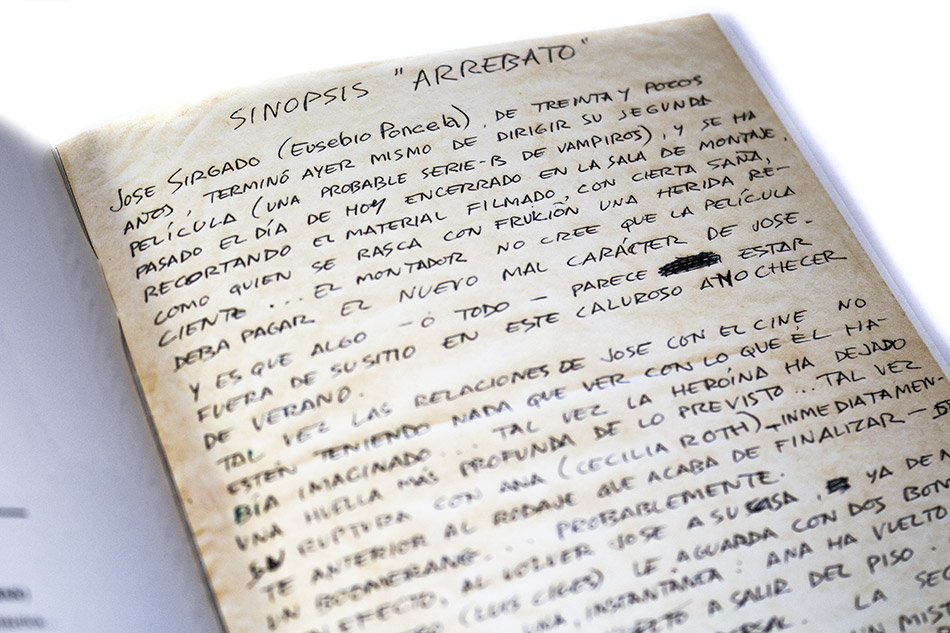 SINOPSIS "ARREBATO"
JOSE SIRGADO (EUSEBIO PONCELA), DE TREINTA Y POCOS
AÑOS, TERMINÓ AYER MISMO DE DIRIGIR SU SEGUNDA
PELÍCULA (UNA PROBABLE SERIE-B DE VAMPIROS), Y SE HA
PASADO EL DÍA DE HOY ENCERRADO EN LA SALA DE MONTAJE,
RECORTANDO EL MATERIAL FILMADO, CON CIERTA SAÑA,
COMO QUIEN SE RASCA CON FRUICIÓN UNA HERIDA RE-
CIENTE... EL MONTADOR NO CREE QUE LA PELÍCULA
DEBA PAGAR EL NUEVO MAL CARÁCTER DE JOSE.
Y ES QUE ALGO - Ó TODO - PARECE ESTAR
FUERA DE SU SITIO EN ESTE CALUROSO ANOCHECER
DE VERANO.
TAL VEZ LAS RELACIONES DE JOSE CON EL CINE NO
ESTÉN TENIENDO NADA QUE VER CON LO QUE ÉL HA-
BÍA IMAGINADO... TAL VEZ LA HEROÍNA HA DEJADO
UNA HUELLA MÁS PROFUNDA DE LO PREVISTO... TAL VEZ
SU RUPTURA CON ANA (CECILIA ROTH), INMEDIATAMEN-
TE ANTERIOR AL RODAJE QUE ACABA DE FINALIZAR -
UN BOOMERANG... PROBABLEMENTE.
EFECTO, AL VOLVER JOSE A SU CASA, YA DE
(LUIS CIGES) LE AGUARDA CON DOS
UNA, INSTANTANEA: ANA HA VUELTO
A SALIR DEL PISO.
LA
UN